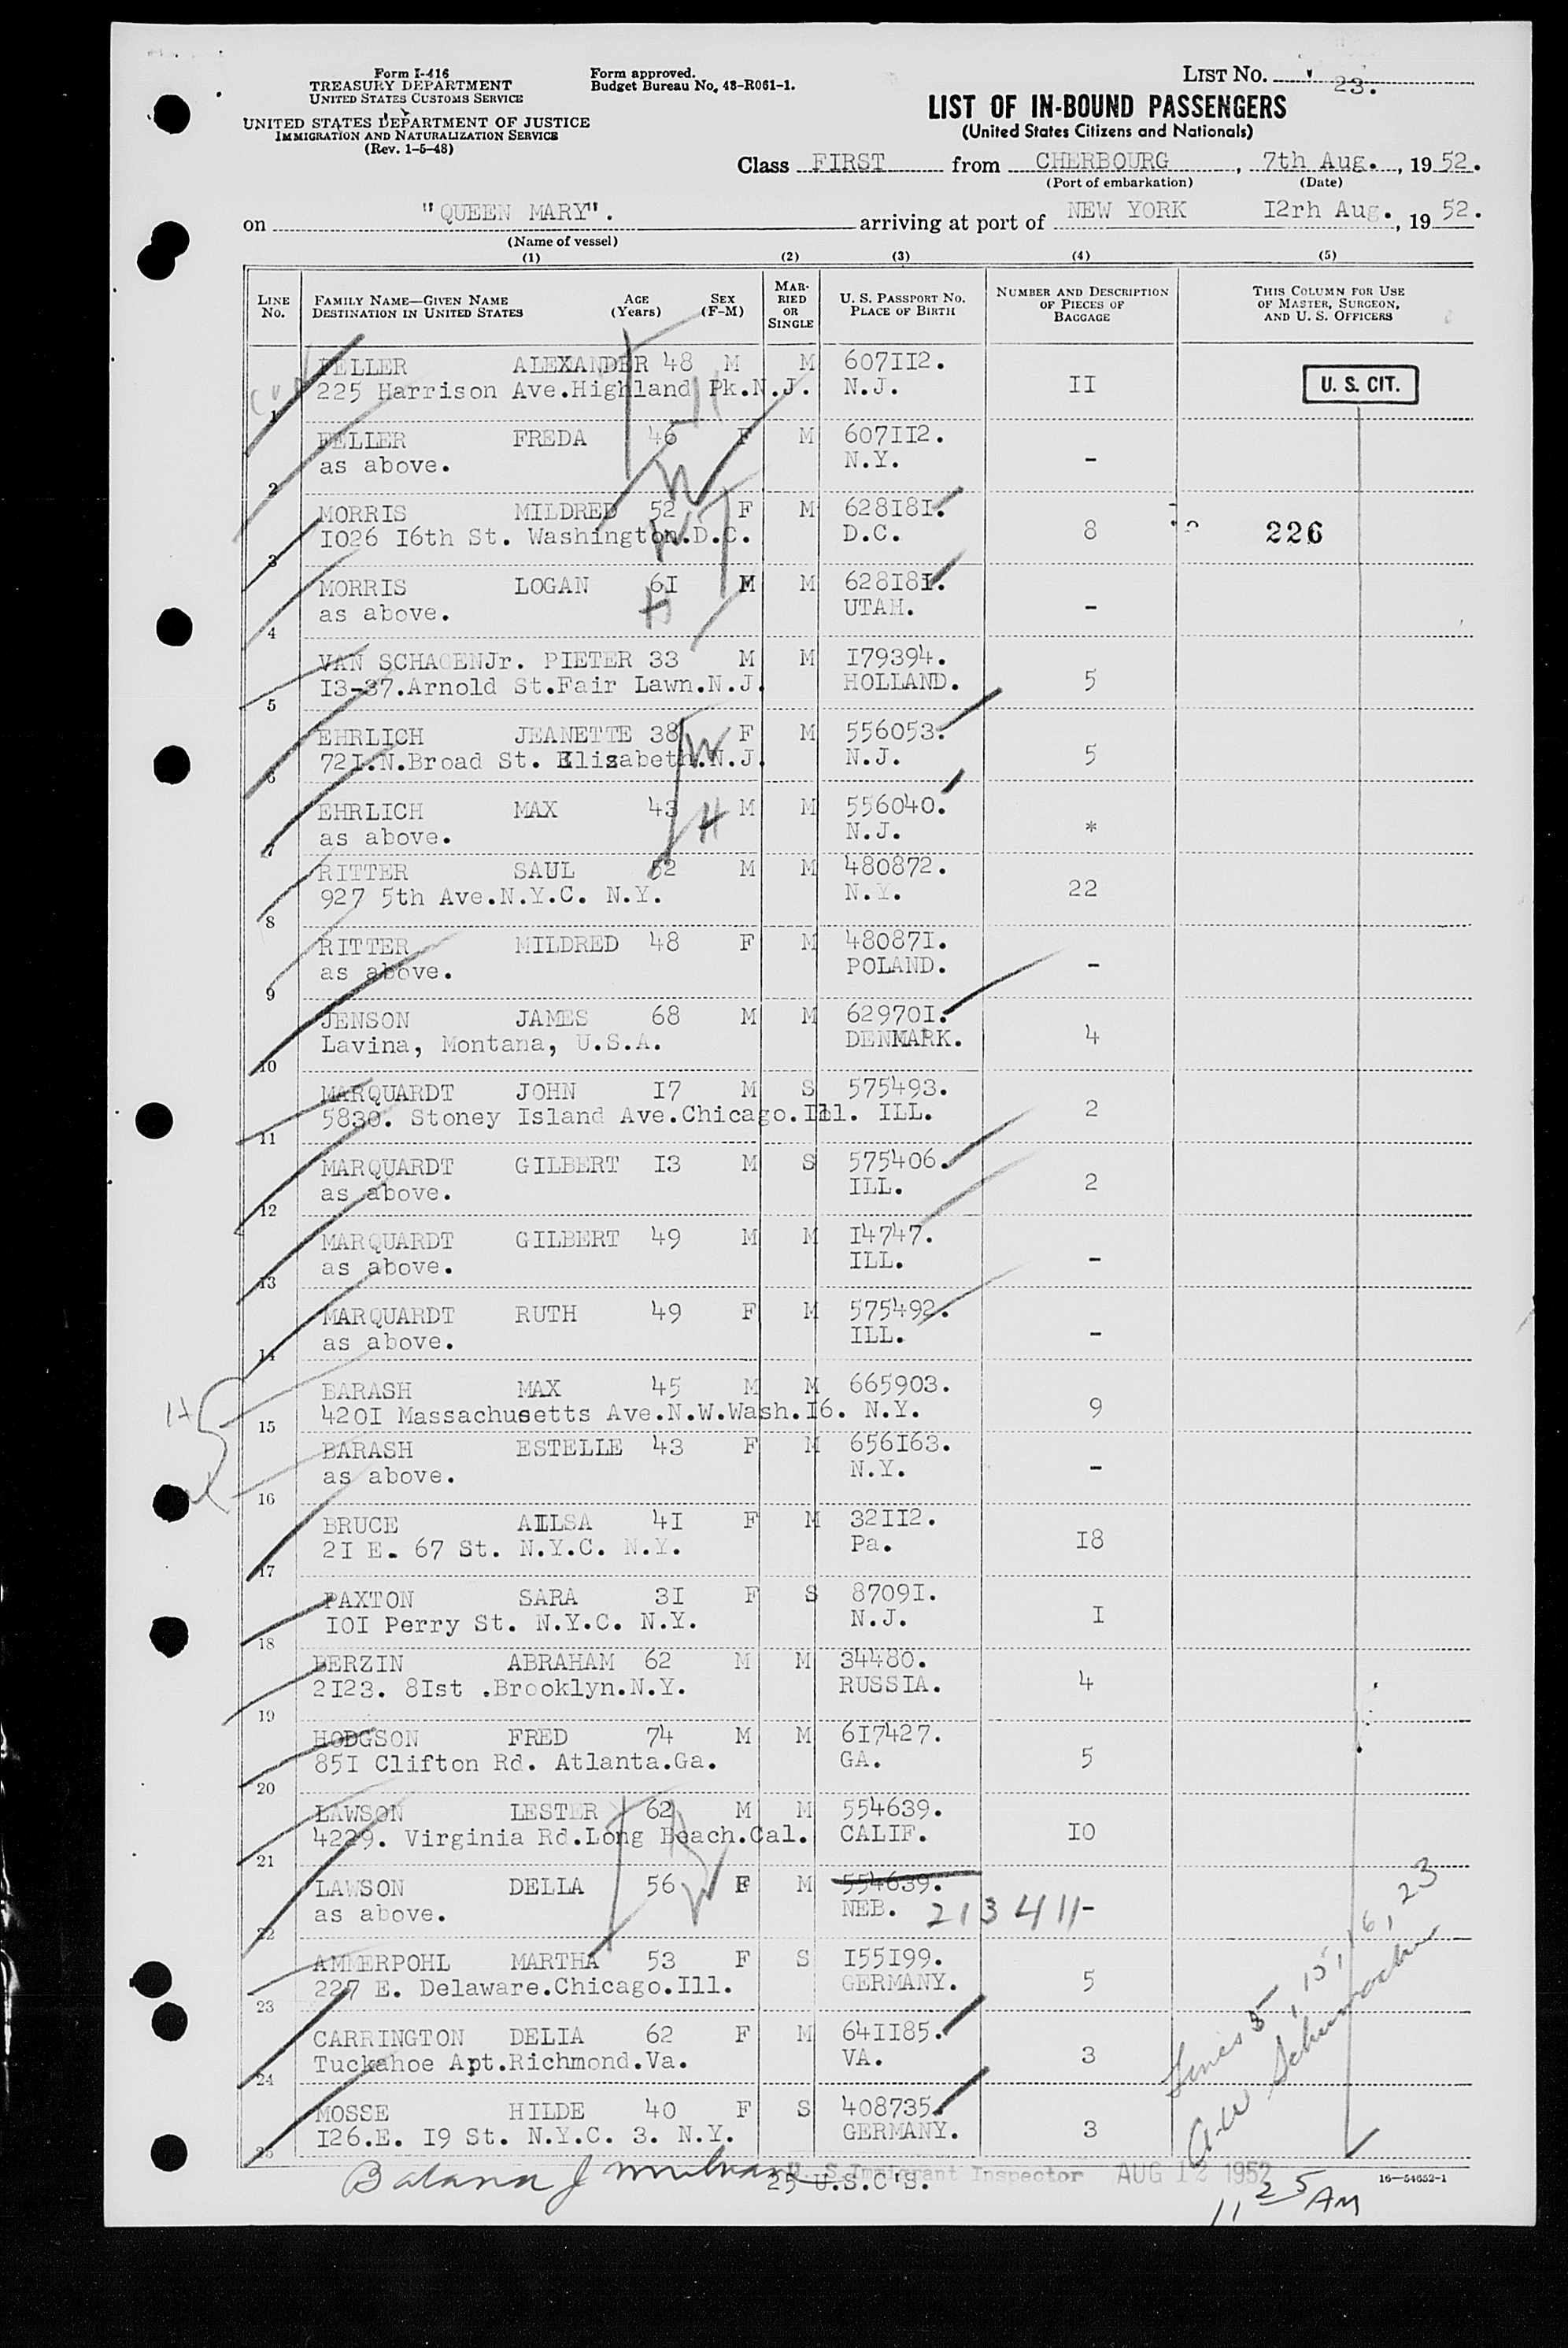 Form I-416
TREASURY DEPARTMENT
UNITED STATES CUSTOMS SERVICE
UNITED STATES DEPARTMENT OF JUSTICE
IMMIGRATION AND NATURALIZATION SERVICE
(Rev. 1-5-48)
Form approved.
Budget Bureau No. 43-R061-1.
LIST NO. 23.
LIST OF IN-BOUND PASSENGERS
(United States Citizens and Nationals)
Class FIRST from CHERBOURG, 7th Aug., 1952.
(Port of embarkation) (Date)
on "QUEEN MARY". arriving at port of NEW YORK I2rh Aug., 1952.
(Name of vessel)
(1) (2) (3) (4) (5)
LINE NO. FAMILY NAME—GIVEN NAME DESTINATION IN UNITED STATES AGE (Years) SEX (F-M) MARRIED OR SINGLE U. S. PASSPORT NO. PLACE OF BIRTH NUMBER AND DESCRIPTION OF PIECES OF BAGGAGE THIS COLUMN FOR USE OF MASTER, SURGEON, AND U. S. OFFICERS
FELLER ALEXANDER 48 M M 607II2.
1 225 Harrison Ave.Highland Pk.N.J. N.J. II U. S. CIT.
FELLER FREDA 46 F M 607II2.
2 as above. N.Y. -
MORRIS MILDRED 52 F M 628I8I.
3 I026 I6th St. Washington.D.C. D.C. 8 226
MORRIS LOGAN 6I M M 628I8I.
4 as above. UTAH. -
VAN SCHAGENJr. PIETER 33 M M I79394.
5 I3-37.Arnold St.Fair Lawn.N.J. HOLLAND. 5
EHRLICH JEANETTE 38 F M 556053.
6 72I.N.Broad St. Elisabeth.N.J. N.J. 5
EHRLICH MAX 43 M M 556040.
7 as above. N.J. *
RITTER SAUL 52 M M 480872.
8 927 5th Ave.N.Y.C. N.Y. N.Y. 22
RITTER MILDRED 48 F M 48087I.
9 as above. POLAND. -
JENSON JAMES 68 M M 62970I.
10 Lavina, Montana, U.S.A. DENMARK. 4
MARQUARDT JOHN I7 M S 575493.
11 5830. Stoney Island Ave.Chicago.Ill. ILL. 2
MARQUARDT GILBERT I3 M S 575406.
12 as above. ILL. 2
MARQUARDT GILBERT 49 M M I4747.
13 as above. ILL. -
MARQUARDT RUTH 49 F M 575492.
14 as above. ILL. -
BARASH MAX 45 M M 665903.
15 420I Massachusetts Ave.N.W.Wash.I6. N.Y. 9
BARASH ESTELLE 43 F M 656I63.
16 as above. N.Y. -
BRUCE AILSA 4I F M 32II2.
17 2I E. 67 St. N.Y.C. N.Y. Pa. I8
PAXTON SARA 3I F S 8709I.
18 I0I Perry St. N.Y.C. N.Y. N.J. I
BERZIN ABRAHAM 62 M M 34480.
19 2I23. 8Ist .Brooklyn.N.Y. RUSSIA. 4
HODGSON FRED 74 M M 6I7427.
20 85I Clifton Rd. Atlanta.Ga. GA. 5
LAWSON LESTER 62 M M 554639.
21 4229. Virginia Rd.Long Beach.Cal. CALIF. I0
LAWSON DELLA 56 F M 554639.
22 as above. NEB. 213411 -
AMMERPOHL MARTHA 53 F S I55I99.
23 227 E. Delaware.Chicago.Ill. GERMANY. 5
CARRINGTON DELIA 62 F M 64II85.
24 Tuckahoe Apt.Richmond.Va. VA. 3
MOSSE HILDE 40 F S 408735.
25 I26.E. I9 St. N.Y.C. 3. N.Y. GERMANY. 3
Lines 5, 15, 16, 23
U. S. Immigrant Inspector AUG 12 1952
25 U.S.C'S.
16—54652-1
11 25 AM